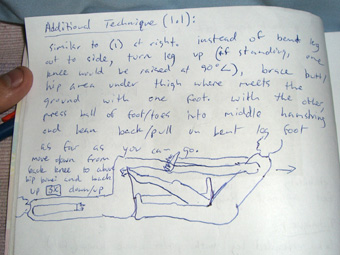 Additional Technique (1.1):
similar to (1) at right. instead of bent leg
out to side, turn leg up (if standing, one
knee would be raised at 90°∠), brace butt/
hip area under thigh where meets the
ground with one foot. with the other,
press ball of foot/toes into middle hamstring
and lean back/pull on bent leg foot
as far as you can go.
move down from
knee to above
hip bone and back
up 3x down/up